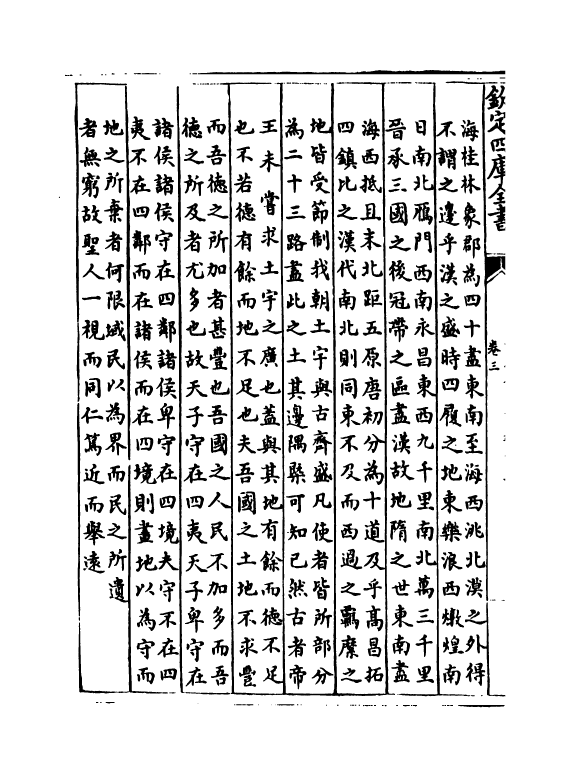 欽定四庫全書
卷三
海桂林象郡為四十盡東南至海西洮北漠之外得
不謂之邊乎漢之盛時四履之地東樂浪西燉煌南
日南北鴈門西南永昌東西九千里南北萬三千里
晉承三國之後冠帶之區盡漢故地隋之世東南盡
海西抵且末北距五原唐初分為十道及乎髙昌拓
四鎮比之漢代南北則同東不及而西過之羈縻之
地皆受節制我朝土宇與古齊盛凡使者皆所部分
為二十三路盡此之土其邊隅槩可知已然古者帝
王未嘗求土宇之廣也蓋與其地有餘而德不足
也不若德有餘而地不足也夫吾國之土地不求豐
而吾德之所加者甚豐也吾國之人民不加多而吾
德之所及者尤多也故天子守在四夷天子卑守在
諸侯諸侯守在四鄰諸侯卑守在四境夫守不在四
夷不在四鄰而在諸侯而在四境則畫地以為守而
地之所棄者何限域民以為界而民之所遺
者無窮故聖人一視而同仁篤近而舉遠